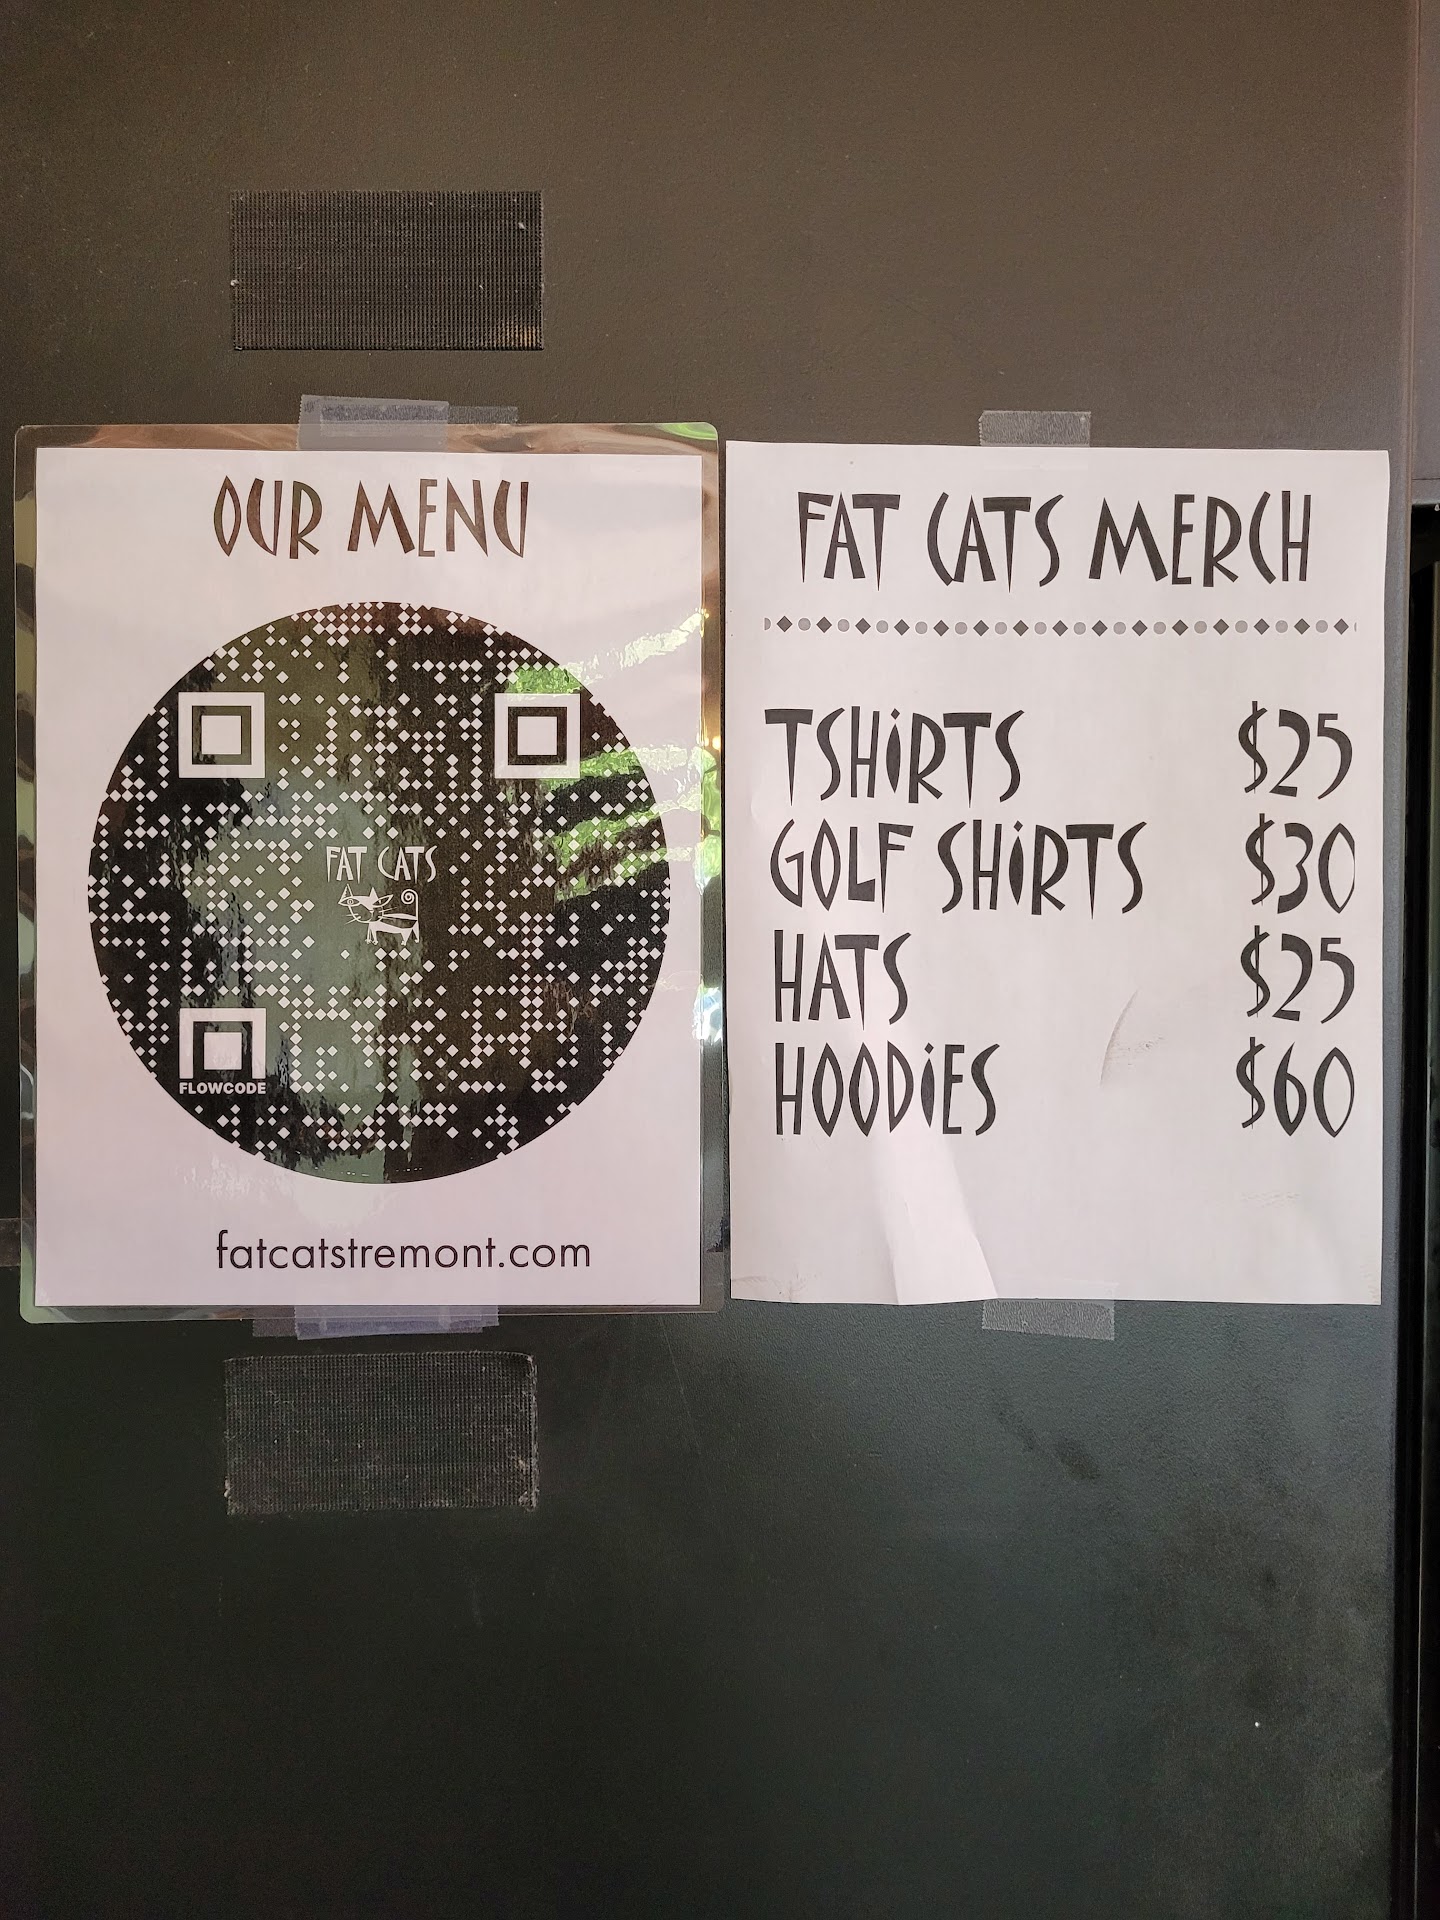 OUR MENU
FAT CATS
FLOWCODE
fatcatstremont.com
FAT CATS MERCH
TSHiRTS $25
GOLF SHiRTS $30
HATS $25
HOODiES $60